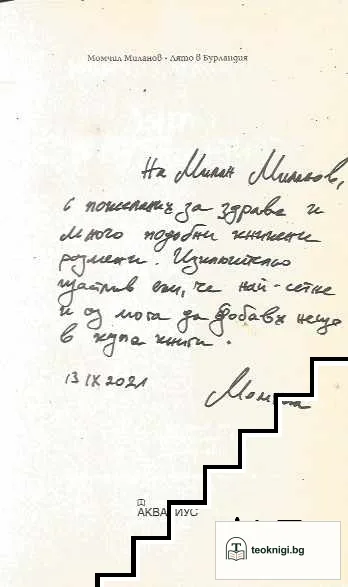 Момчил Миланов • Лято в Бурландия
На Милан Миланов,
с пожелания за здраве и
много подобни книжни
размени. Изключително
щастлив съм, че най-сетне
и аз мога да добавя нещо
в купа книги.
13 IX 2021
АКВА ИУС
teoknigi.bg